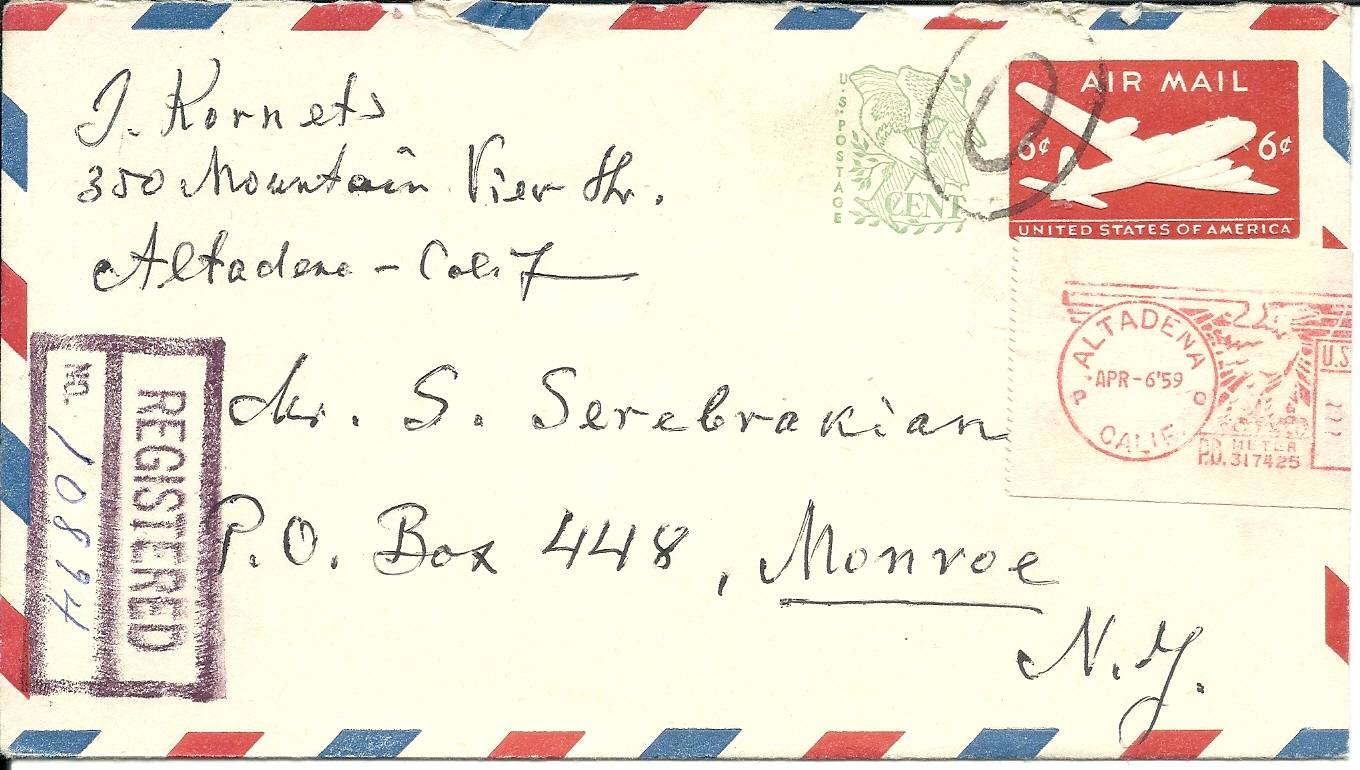 J. Kornets
350 Mountain View Str.
Altadena - Calif
U.S. POSTAGE
CENT
AIR MAIL
6¢ 6¢
UNITED STATES OF AMERICA
ALTADENA
APR-6'59
CALIF.
U.S
METER
P.O. 317425
REGISTERED
NO.
Mr. S. Serebrakian
P.O. Box 448, Monroe
N.Y.